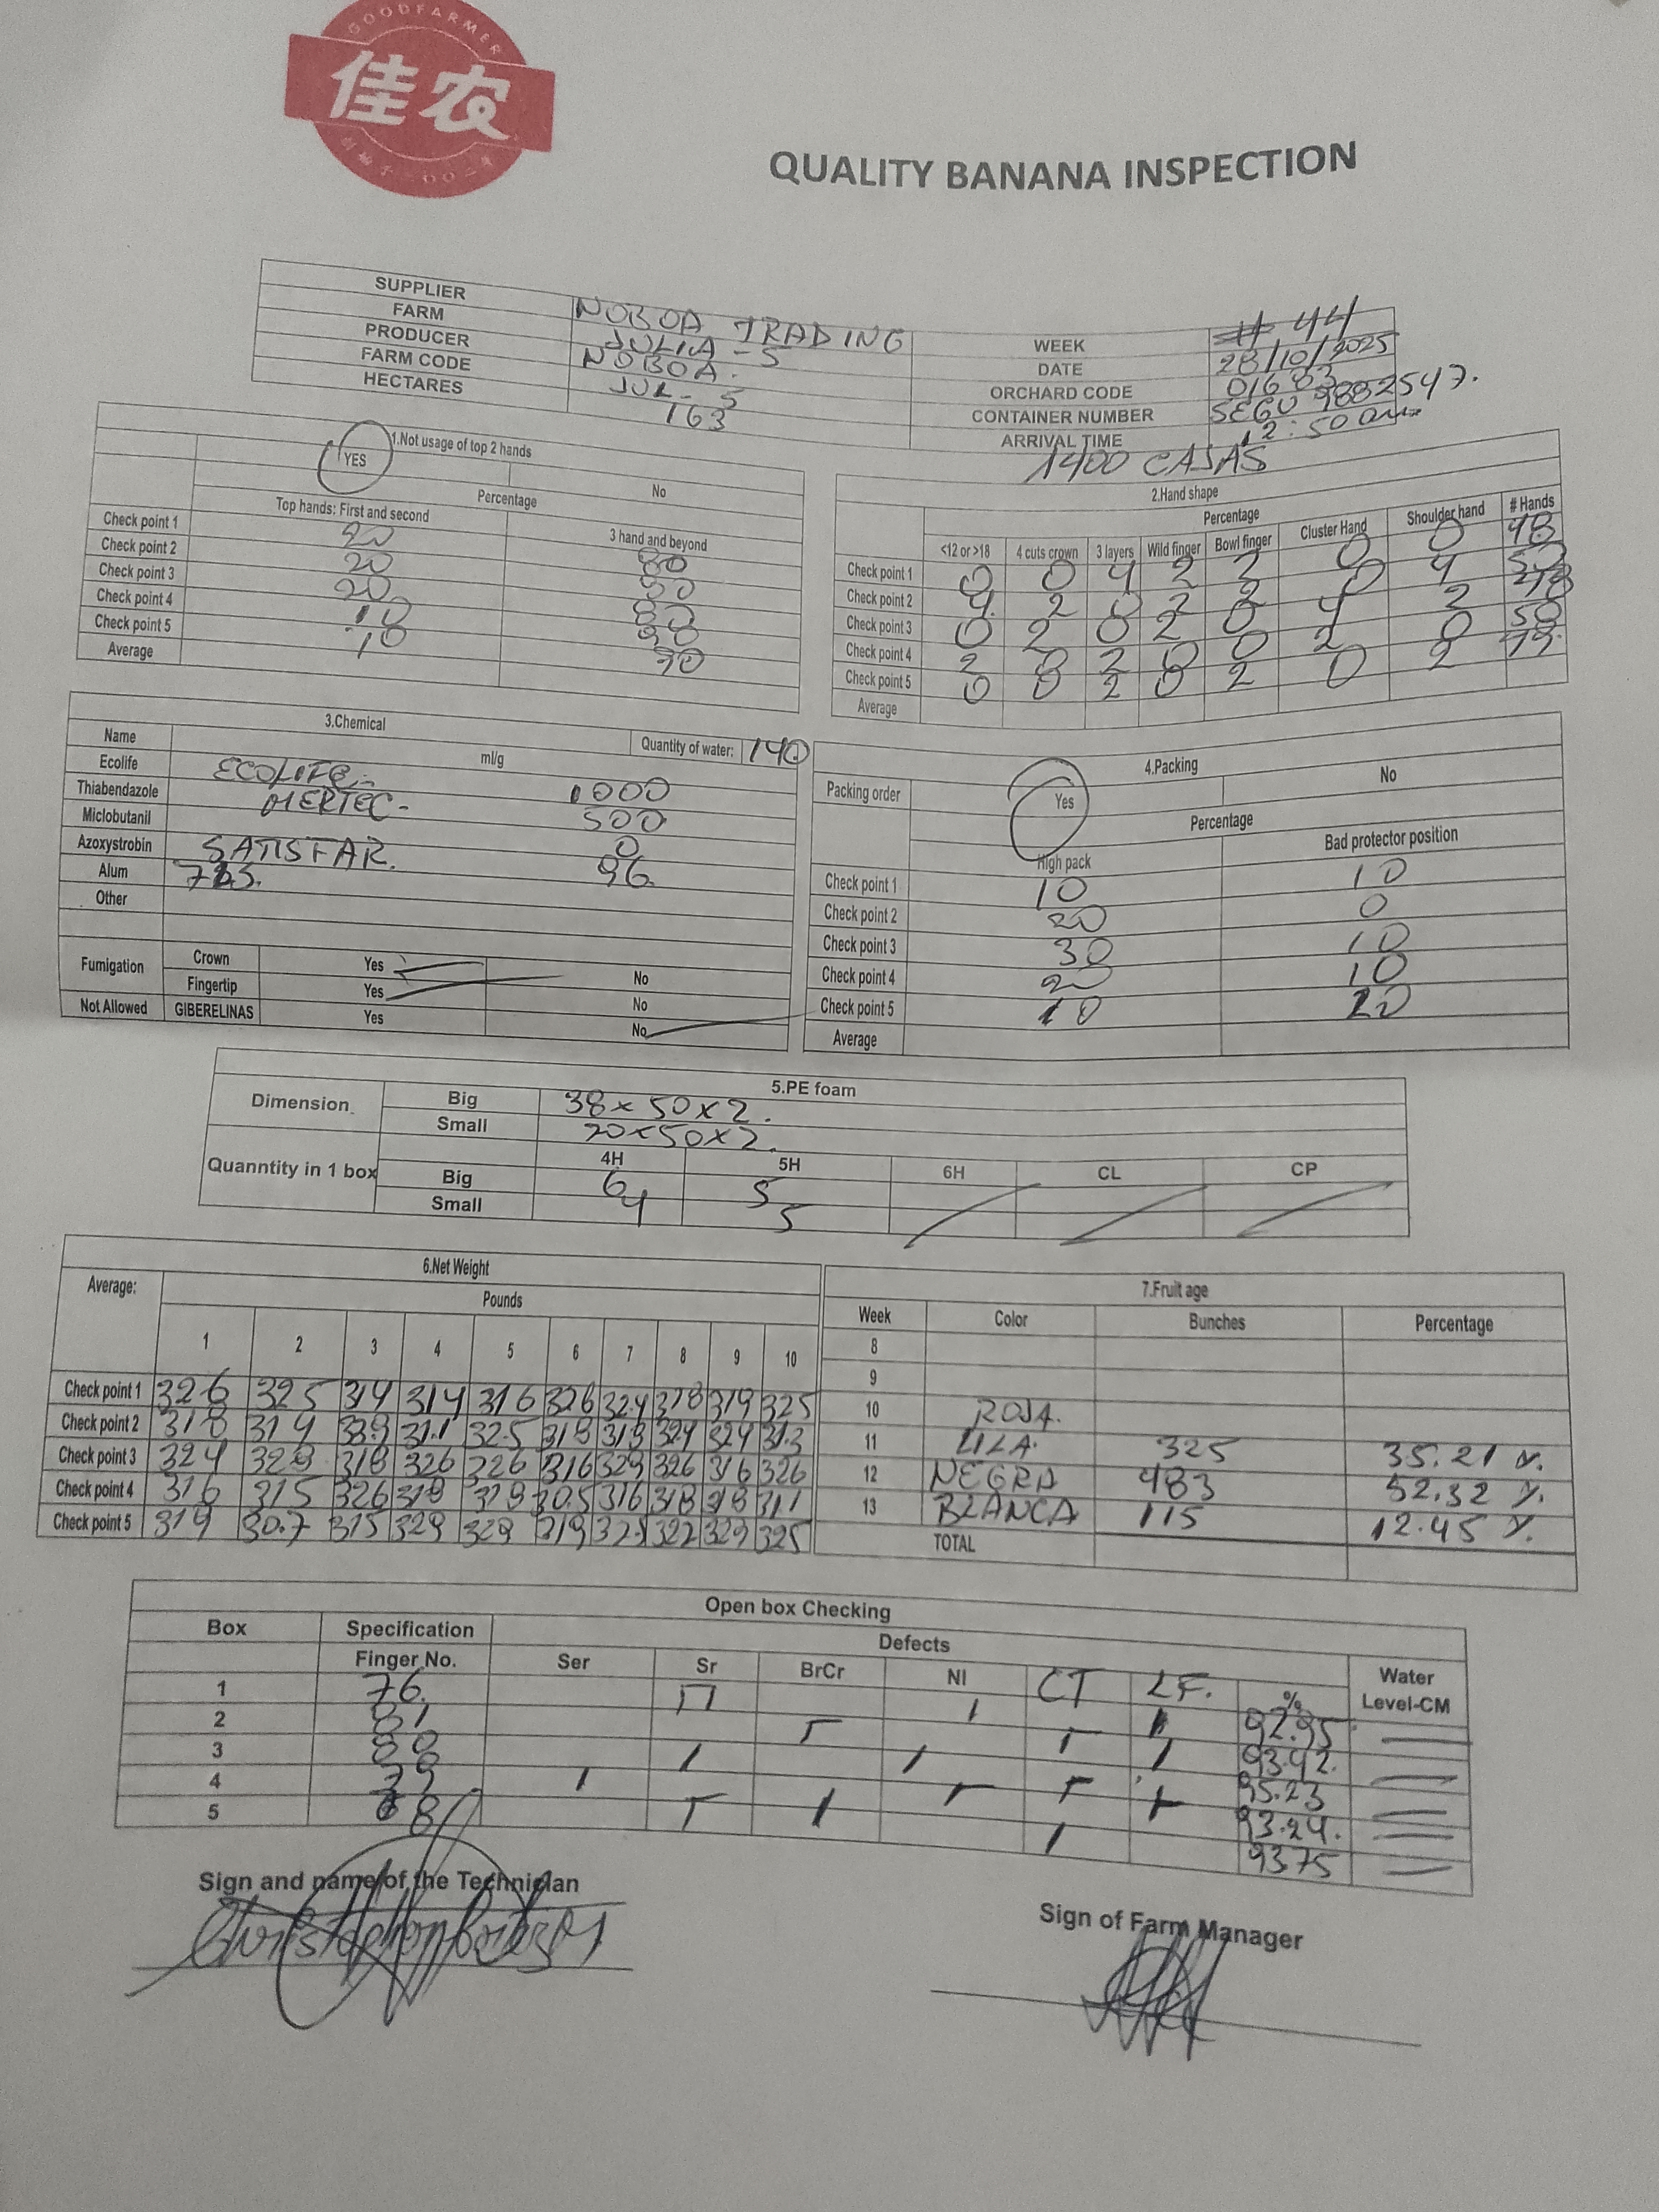 GOODFARMER
佳农
QUALITY BANANA INSPECTION
SUPPLIER NOBOA TRADING
FARM JULIA - 5
PRODUCER NOBOA.
FARM CODE JUL - 5
HECTARES 163
WEEK # 44
DATE 28/10/2025
ORCHARD CODE 01683
CONTAINER NUMBER SEGU 9882547.
ARRIVAL TIME 12:50 am
1400 CAJAS
1.Not usage of top 2 hands
YES No
Percentage
Top hands: First and second 3 hand and beyond
Check point 1 20 80
Check point 2 20 80
Check point 3 20 80
Check point 4 10 90
Check point 5 10 90
Average
2.Hand shape
Percentage
<12 or >18 4 cuts crown 3 layers Wild finger Bowl finger Cluster Hand Shoulder hand # Hands
Check point 1 0 0 4 2 2 0 0 48
Check point 2 4 2 0 2 2 0 4
Check point 3 0 2 0 2 0 4 2
Check point 4 2 0 2 0 0 2 0 50
Check point 5 0 0 2 0 2 0 2
Average
3.Chemical
Name ml/g Quantity of water: 140
Ecolife ECOLIFE- 1000
Thiabendazole MERTEC- 500
Miclobutanil 0
Azoxystrobin SATISFAR. 96
Alum
Other
Fumigation Crown Yes No
Fingertip Yes No
Not Allowed GIBERELINAS Yes No
4.Packing
Packing order Yes No
Percentage
High pack Bad protector position
Check point 1 10 10
Check point 2 20 0
Check point 3 30 10
Check point 4 20 10
Check point 5 10 20
Average
5.PE foam
Dimension. Big 38x50x2.
Small 20x50x2.
4H 5H 6H CL CP
Quanntity in 1 box Big 6 5
Small 4 5
6.Net Weight
Average: Pounds
1 2 3 4 5 6 7 8 9 10
Check point 1 326 325 314 314 316 326 324 318 319 325
Check point 2 318 319 31.1 32.5 318 318 324 324 31.3
Check point 3 324 328 318 326 326 316 329 326 316 326
Check point 4 316 315 326 318 318 30.5 316 318 318 311
Check point 5 319 30.7 315 329 329 319 322 329 325
7.Fruit age
Week Color Bunches Percentage
8
9
10 ROJA.
11 LILA. 325 35.21 %.
12 NEGRA 483 52.32 %.
13 BLANCA 115 12.45 %.
TOTAL
Open box Checking
Box Specification Defects
Finger No. Ser Sr BrCr NI CT LF. % Water Level-CM
1 76. 92.95
2 81 93.42.
3 80 95.23
4 79 93.24.
5 68 93.75
Sign and name of the Technician
Sign of Farm Manager